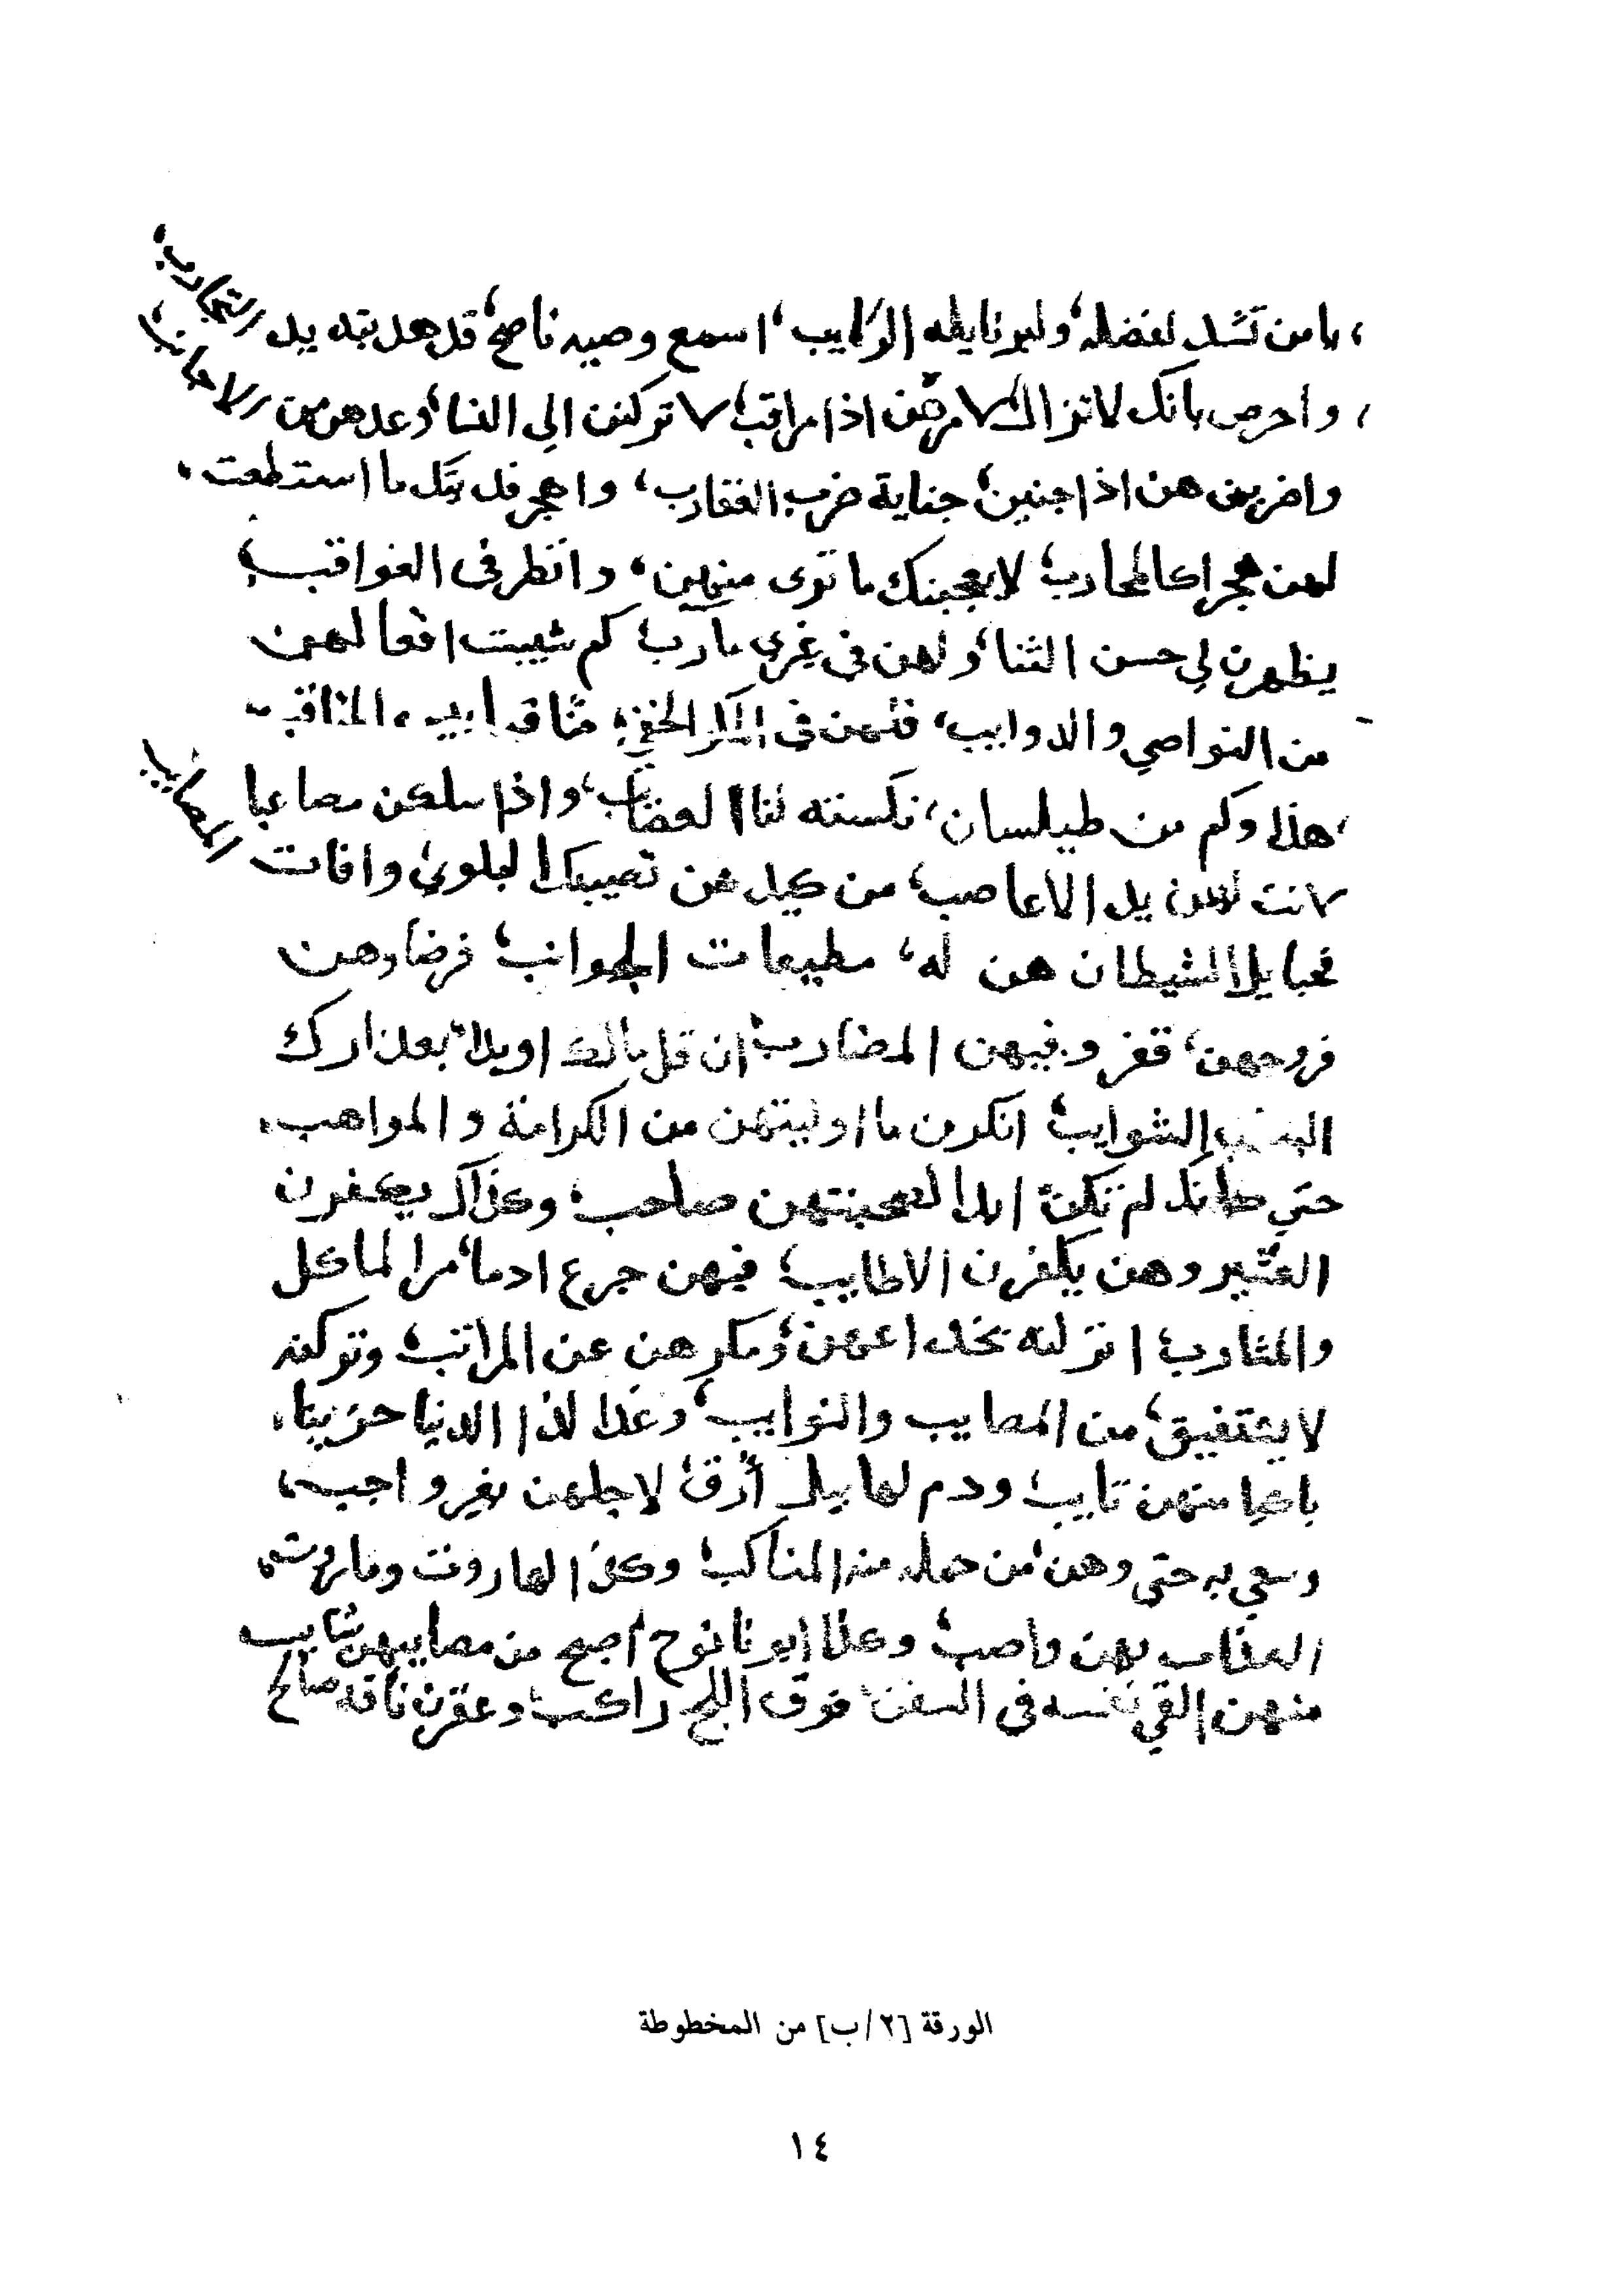 يا من تشد لفضله، ولبر نايله الركايب، اسمع وصيه ناصح، قد هذبته يد التجارب،
واحرص بانك لا تزال لامرهن اذا مراقب، لا تركنن الى النسا، وعدهن من الاجانب،
واضربهن هن اذا جنين، جناية ضرب العقارب، واهجر فديتك ما استطعت،
لهن هجرا كالمحارب، لا يعجبنك ما ترى منهن، وانظر فى العواقب،
يظهرن لي حسن الثنا، ولهن فى غيري مآرب، كم شيبت افعالهن
من النواصي والدوايب، فلهن في المكر الخفي،
هذا وكم من طيلسان، نكسته لنا العصايب، واذا سلكن مصاعبا
كانت لهن يد الاعاصب، من كيد هن تصيبك البلوى وافات المصايب
فحبايل الشيطان هن له، مطيعات الجوانب، فرضاوهن
فروجهن، قفر وفيهن المضارب، ان قل مالك او بدا، بعذارك
الشوايب، انكرن ما اوليتهن من الكرامة والمواهب،
حتى كانك لم تكن ابدا لصحبتهن صاحب، وكذاك يكفرن
العشير وهن يكفرن الاطايب، فبهن جرع ادما، مرا لماكل
والمشارب، انزلنه بخداعهن، ومكرهن عن المراتب، وتركنه
لا يستفيق، من المصايب والنوايب، وغدا لذا الدنيا حزينا،
باكيا منهن تايب، ودم لهابيل أرق، لاجلهن بغير واجب،
وسعي به حتى وهن، من حمله منه المناكب، وكذا لهاروت وماروت،
العذاب بهن واصب، وكذا ابونا نوح اصبح من مصايبهن شايب
منهن القي نفسه في السفن، فوق اللج راكب، وعقرن ناقه صالح
الورقة [٢/ب] من المخطوطة
١٤